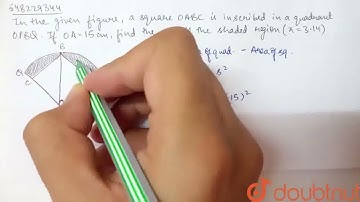 548229344
In the given figure, a square OABC is inscribed in a quadrant
OPBQ. If OA = 15cm, find the the shaded region (π = 3.14)
B
quad. - Area of sq.
Q
C
15)²
doubtnut